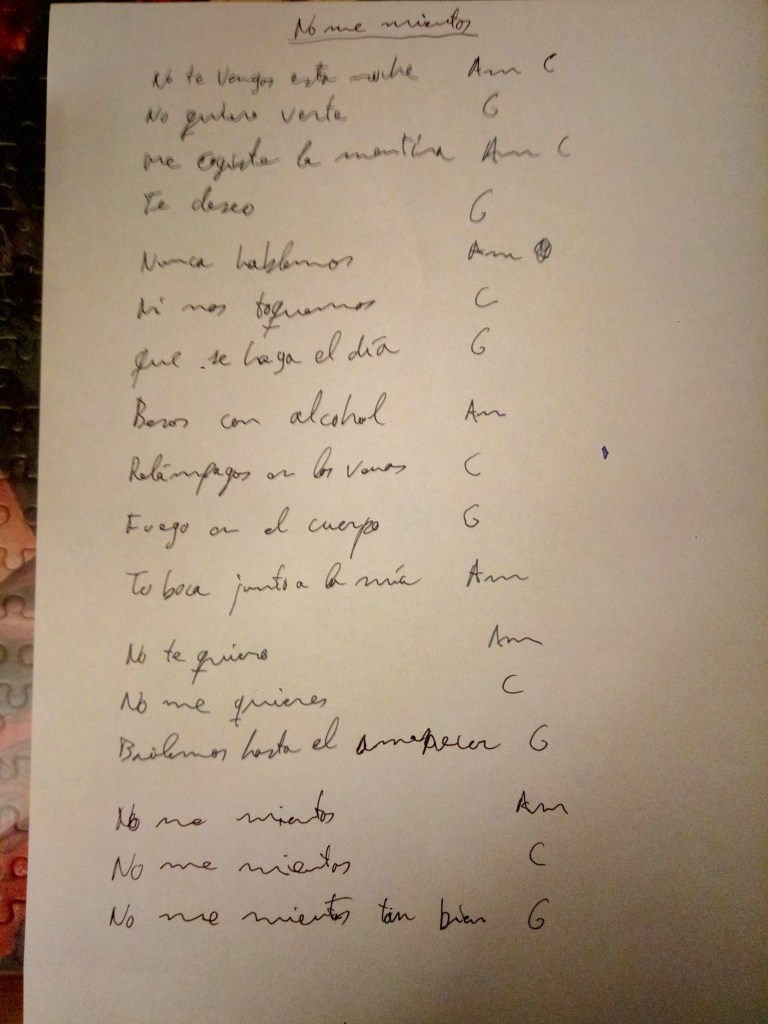 No me mientas
No te vengas esta noche Am C
No quiero verte G
Me the la mentira Am C
Te deseo G
Nunca hablemos Am
Ni nos toquemos C
Que se haga el día G
Besos con alcohol Am
Relámpagos en las venas C
Fuego en el cuerpo G
Tu boca junto a la mía Am
No te quiero Am
No me quieres C
Bailemos hasta el amanecer G
No me mientas Am
No me mientas C
No me mientas tan bien G